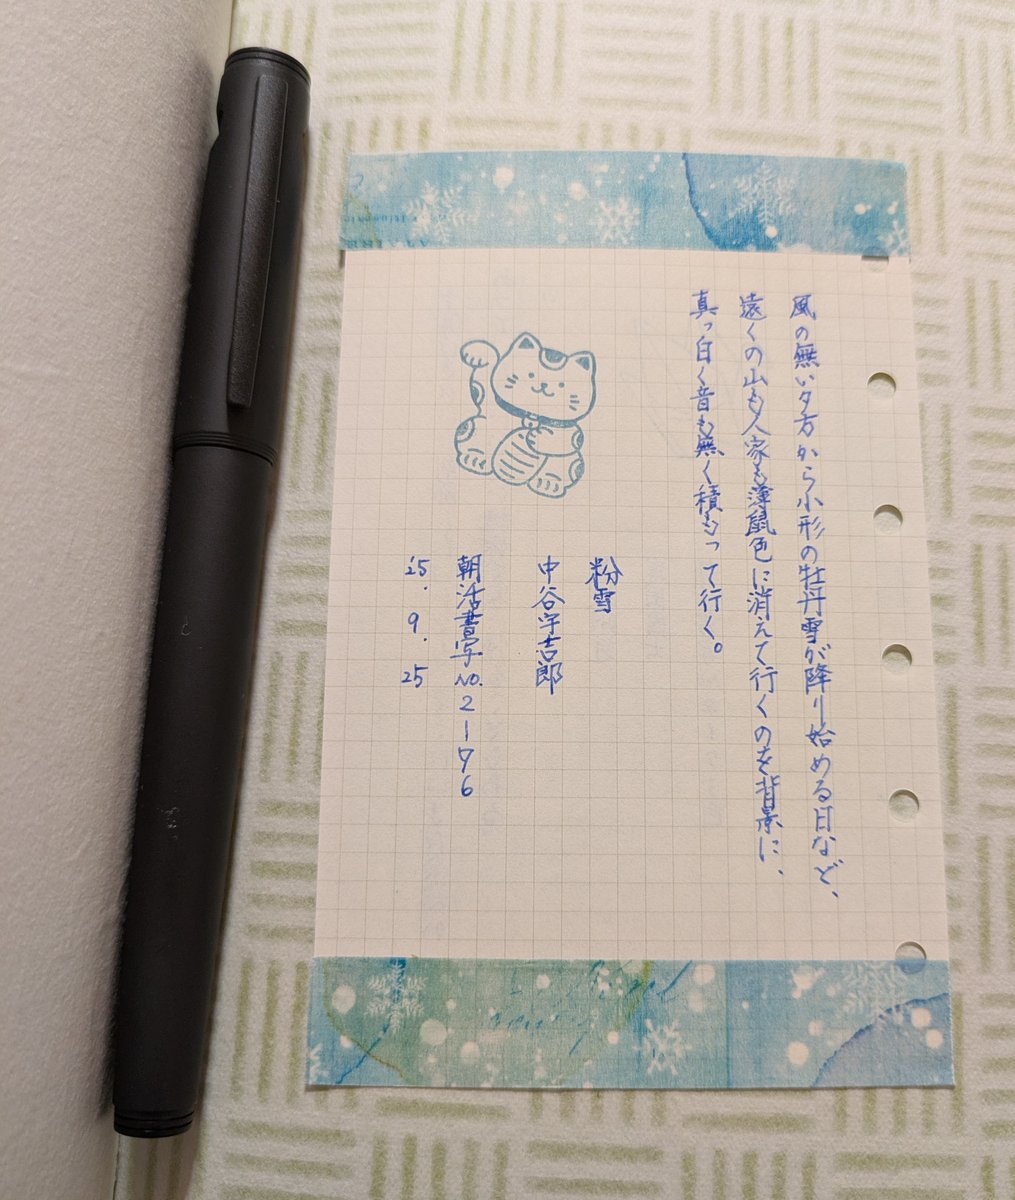 風の無い夕方から小形の牡丹雪が降り始める日など、
遠くの山も人家も薄鼠色に消えて行くのを背景に、
真っ白く音も無く積もって行く。
粉雪
中谷宇吉郎
朝活書写No.2176
'25.9.25